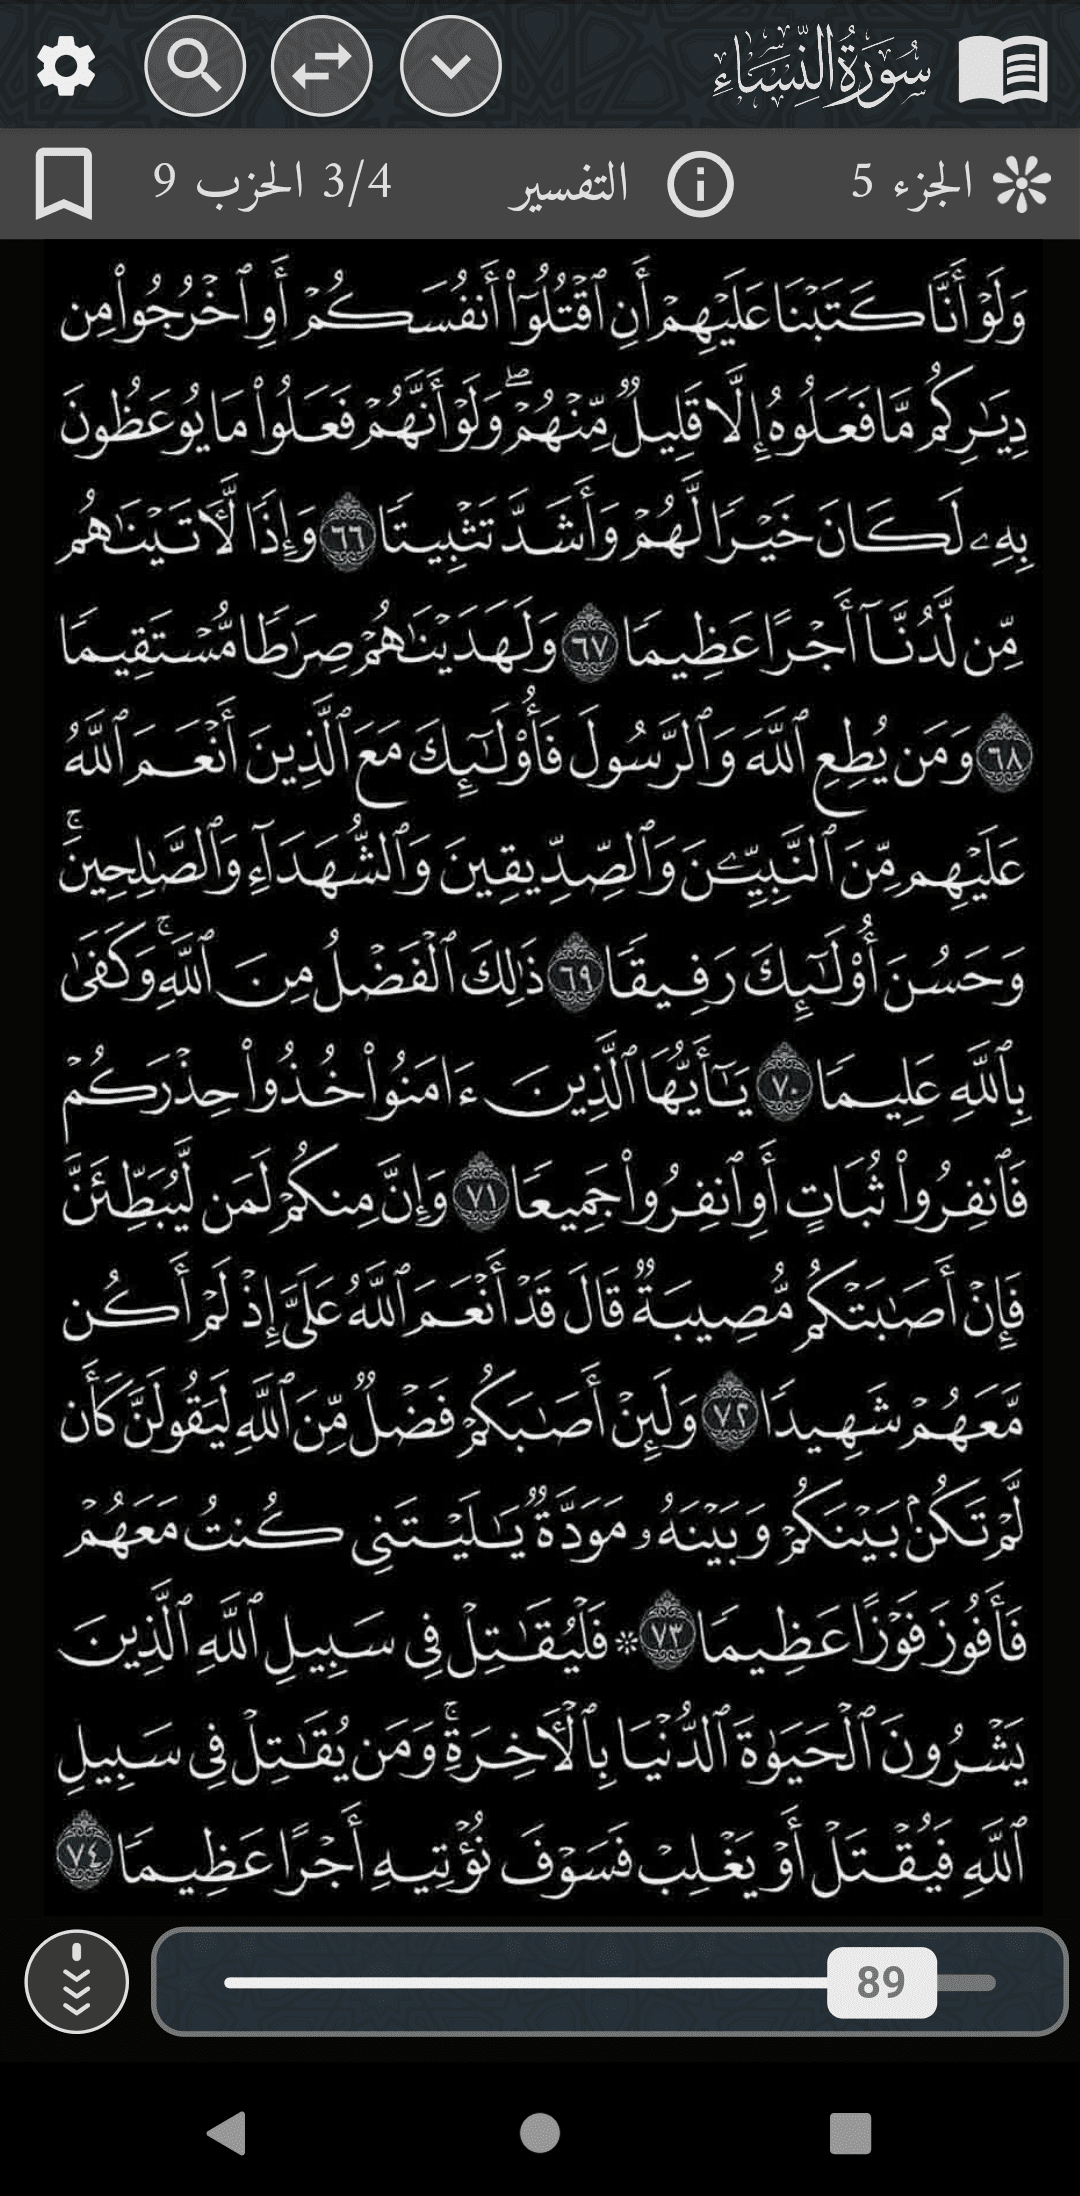 سُورَةُ النِّسَاءِ
الجزء 5
التفسير
3/4 الحزب 9
وَلَوْ أَنَّا كَتَبْنَا عَلَيْهِمْ أَنِ ٱقْتُلُوٓا۟ أَنفُسَكُمْ أَوِ ٱخْرُجُوا۟ مِن
دِيَـٰرِكُم مَّا فَعَلُوهُ إِلَّا قَلِيلٌ مِّنْهُمْ ۖ وَلَوْ أَنَّهُمْ فَعَلُوا۟ مَا يُوعَظُونَ
بِهِۦ لَكَانَ خَيْرًا لَّهُمْ وَأَشَدَّ تَثْبِيتًا ٦٦ وَإِذًا لَّـَٔاتَيْنَـٰهُم
مِّن لَّدُنَّآ أَجْرًا عَظِيمًا ٦٧ وَلَهَدَيْنَـٰهُمْ صِرَٰطًا مُّسْتَقِيمًا
٦٨ وَمَن يُطِعِ ٱللَّهَ وَٱلرَّسُولَ فَأُو۟لَـٰٓئِكَ مَعَ ٱلَّذِينَ أَنْعَمَ ٱللَّهُ
عَلَيْهِم مِّنَ ٱلنَّبِيِّـۧنَ وَٱلصِّدِّيقِينَ وَٱلشُّهَدَآءِ وَٱلصَّـٰلِحِينَ ۚ
وَحَسُنَ أُو۟لَـٰٓئِكَ رَفِيقًا ٦٩ ذَٰلِكَ ٱلْفَضْلُ مِنَ ٱللَّهِ ۚ وَكَفَىٰ
بِٱللَّهِ عَلِيمًا ٧٠ يَـٰٓأَيُّهَا ٱلَّذِينَ ءَامَنُوا۟ خُذُوا۟ حِذْرَكُمْ
فَٱنفِرُوا۟ ثُبَاتٍ أَوِ ٱنفِرُوا۟ جَمِيعًا ٧١ وَإِنَّ مِنكُمْ لَمَن لَّيُبَطِّئَنَّ
فَإِنْ أَصَـٰبَتْكُم مُّصِيبَةٌ قَالَ قَدْ أَنْعَمَ ٱللَّهُ عَلَىَّ إِذْ لَمْ أَكُن
مَّعَهُمْ شَهِيدًا ٧٢ وَلَئِنْ أَصَـٰبَكُمْ فَضْلٌ مِّنَ ٱللَّهِ لَيَقُولَنَّ كَأَن
لَّمْ تَكُنۢ بَيْنَكُمْ وَبَيْنَهُۥ مَوَدَّةٌ يَـٰلَيْتَنِى كُنتُ مَعَهُمْ
فَأَفُوزَ فَوْزًا عَظِيمًا ٧٣ ۞ فَلْيُقَـٰتِلْ فِى سَبِيلِ ٱللَّهِ ٱلَّذِينَ
يَشْرُونَ ٱلْحَيَوٰةَ ٱلدُّنْيَا بِٱلْـَٔاخِرَةِ ۚ وَمَن يُقَـٰتِلْ فِى سَبِيلِ
ٱللَّهِ فَيُقْتَلْ أَوْ يَغْلِبْ فَسَوْفَ نُؤْتِيهِ أَجْرًا عَظِيمًا ٧٤
89